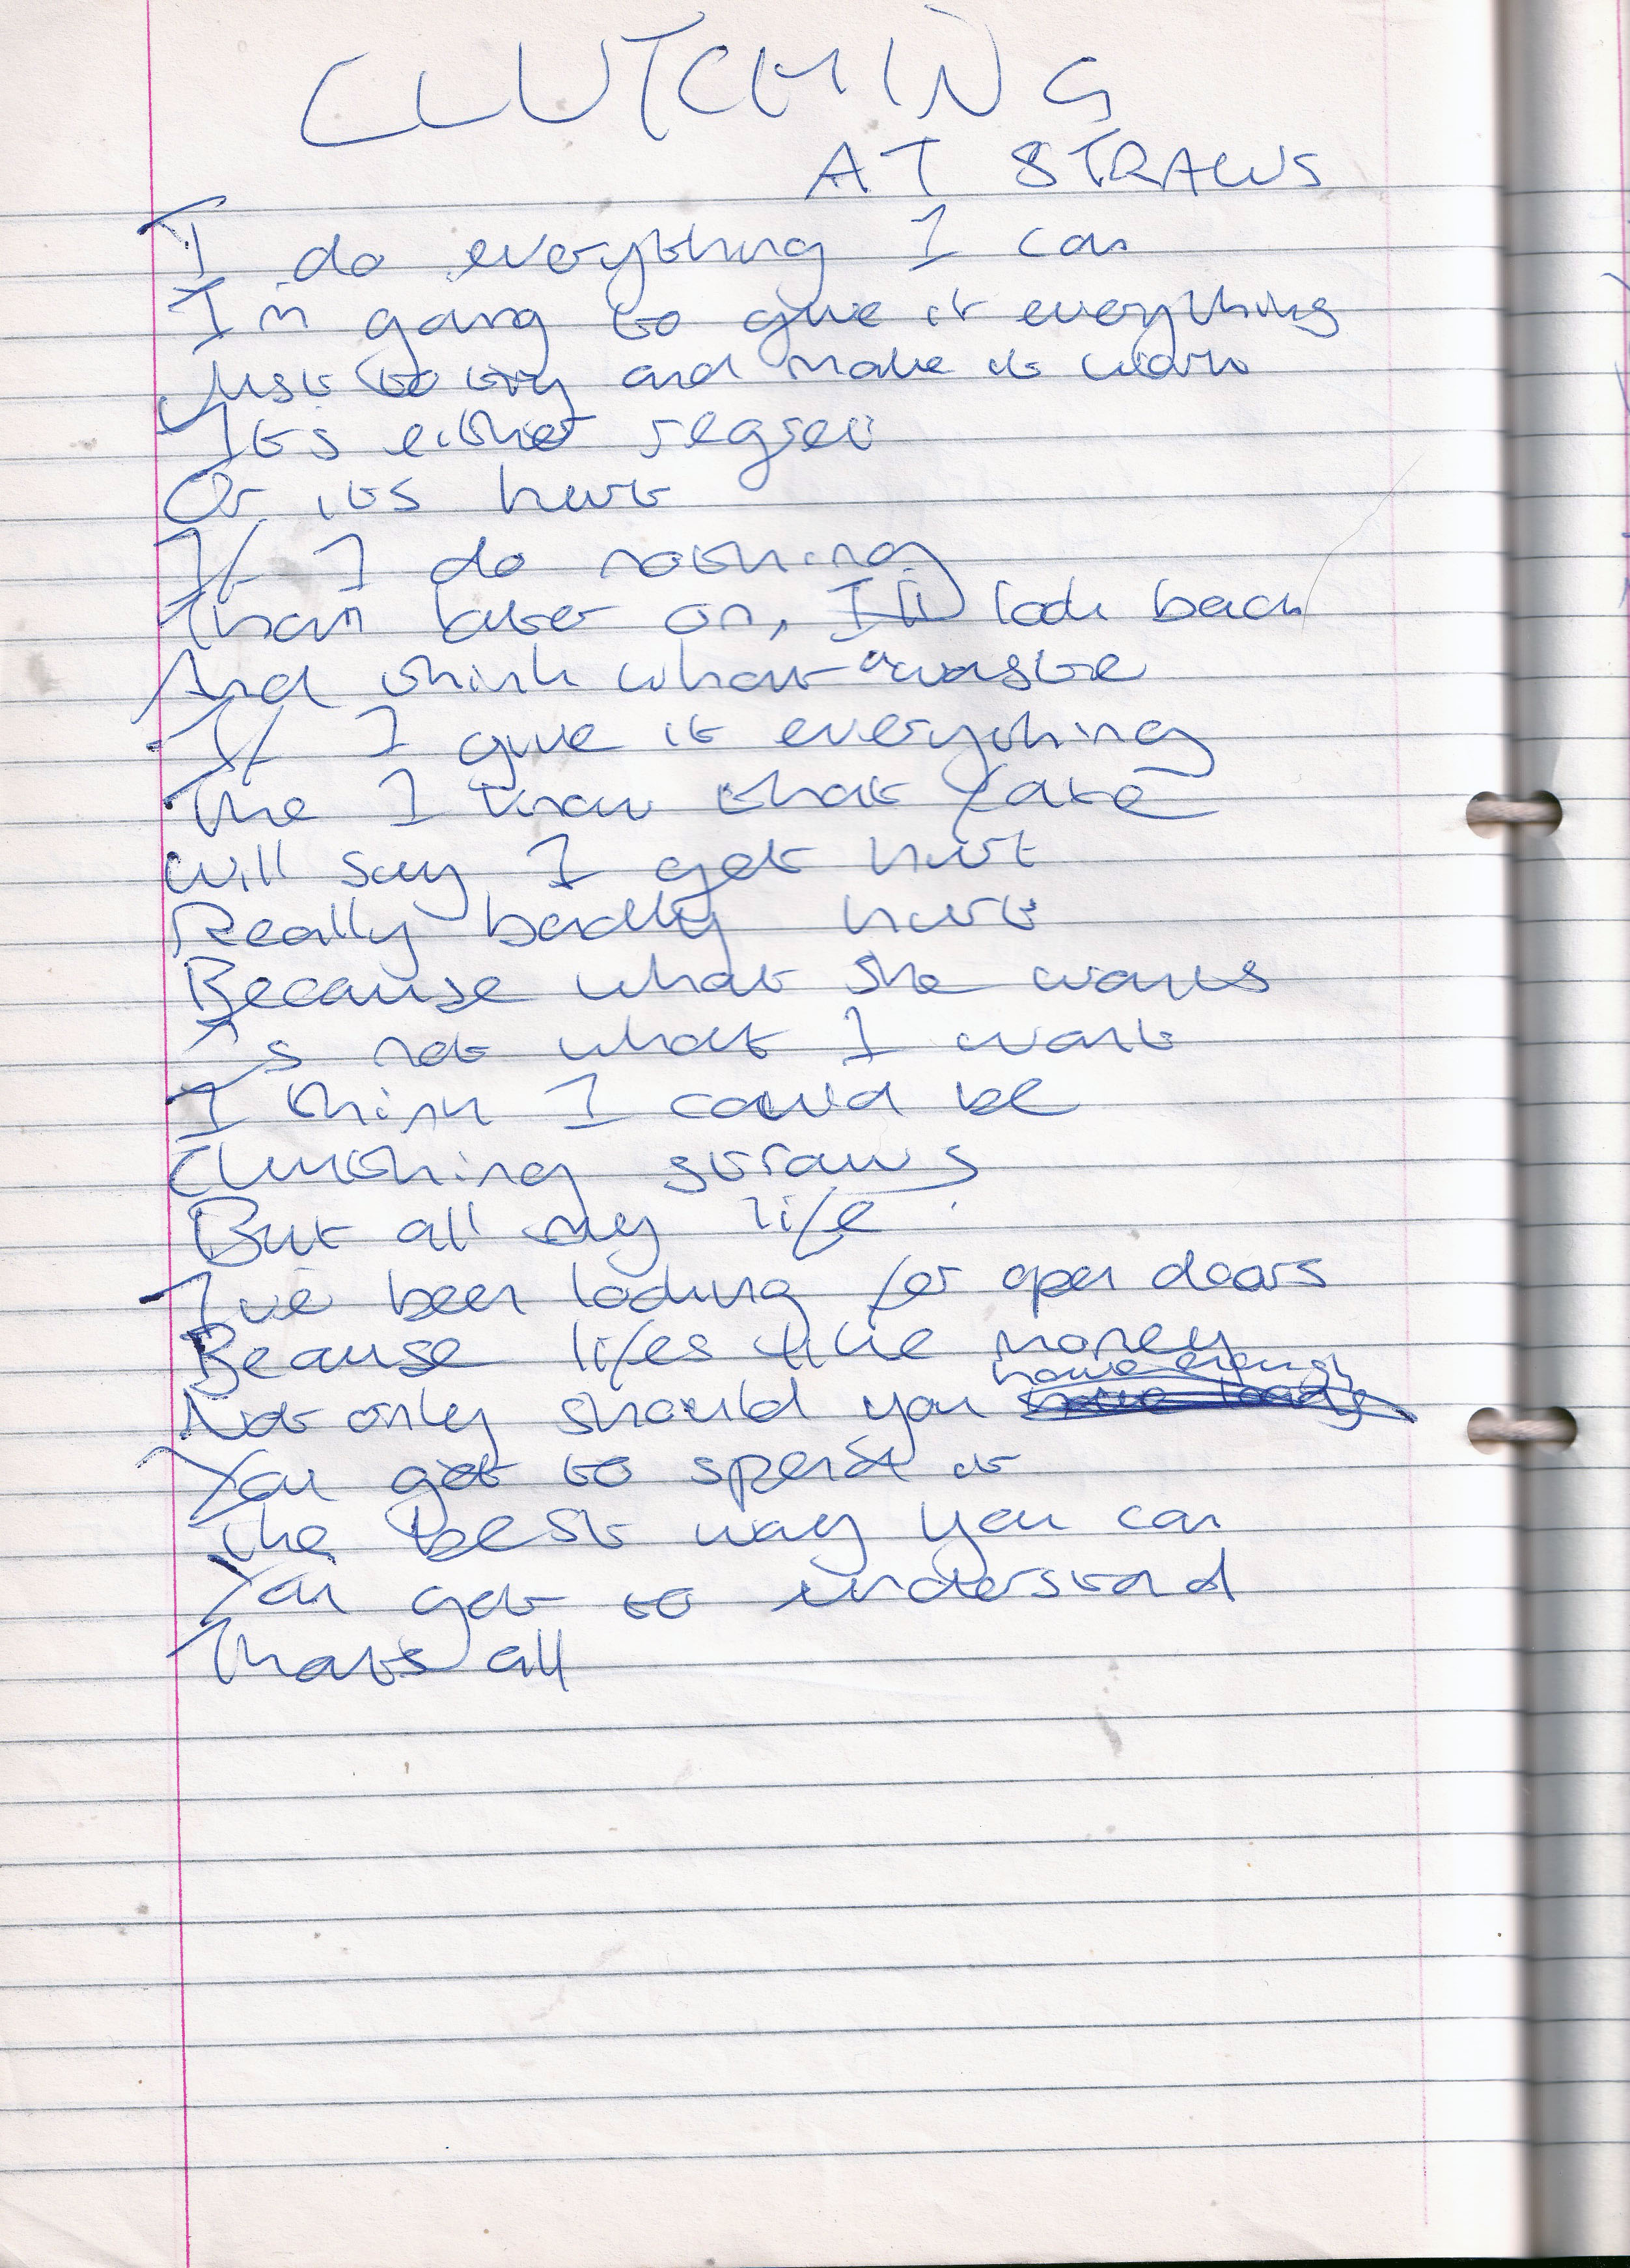 CLUTCHING
AT STRAWS
I do everything I can
I'm going to give it everything
Just to try and make it work
Its either regret
Or its hurt
If I do nothing
Than later on, I'll look back
And think what a waste
If I give it everything
The I know that fate
will say I get hurt
Really badly hurt
Because what she wants
Is not what I want
I think I could be
Clutching straws
But all my life
I've been looking for open doors
Because lifes like money
Not only should you have enough
You got to spend it
The best way you can
You got to understand
Thats all